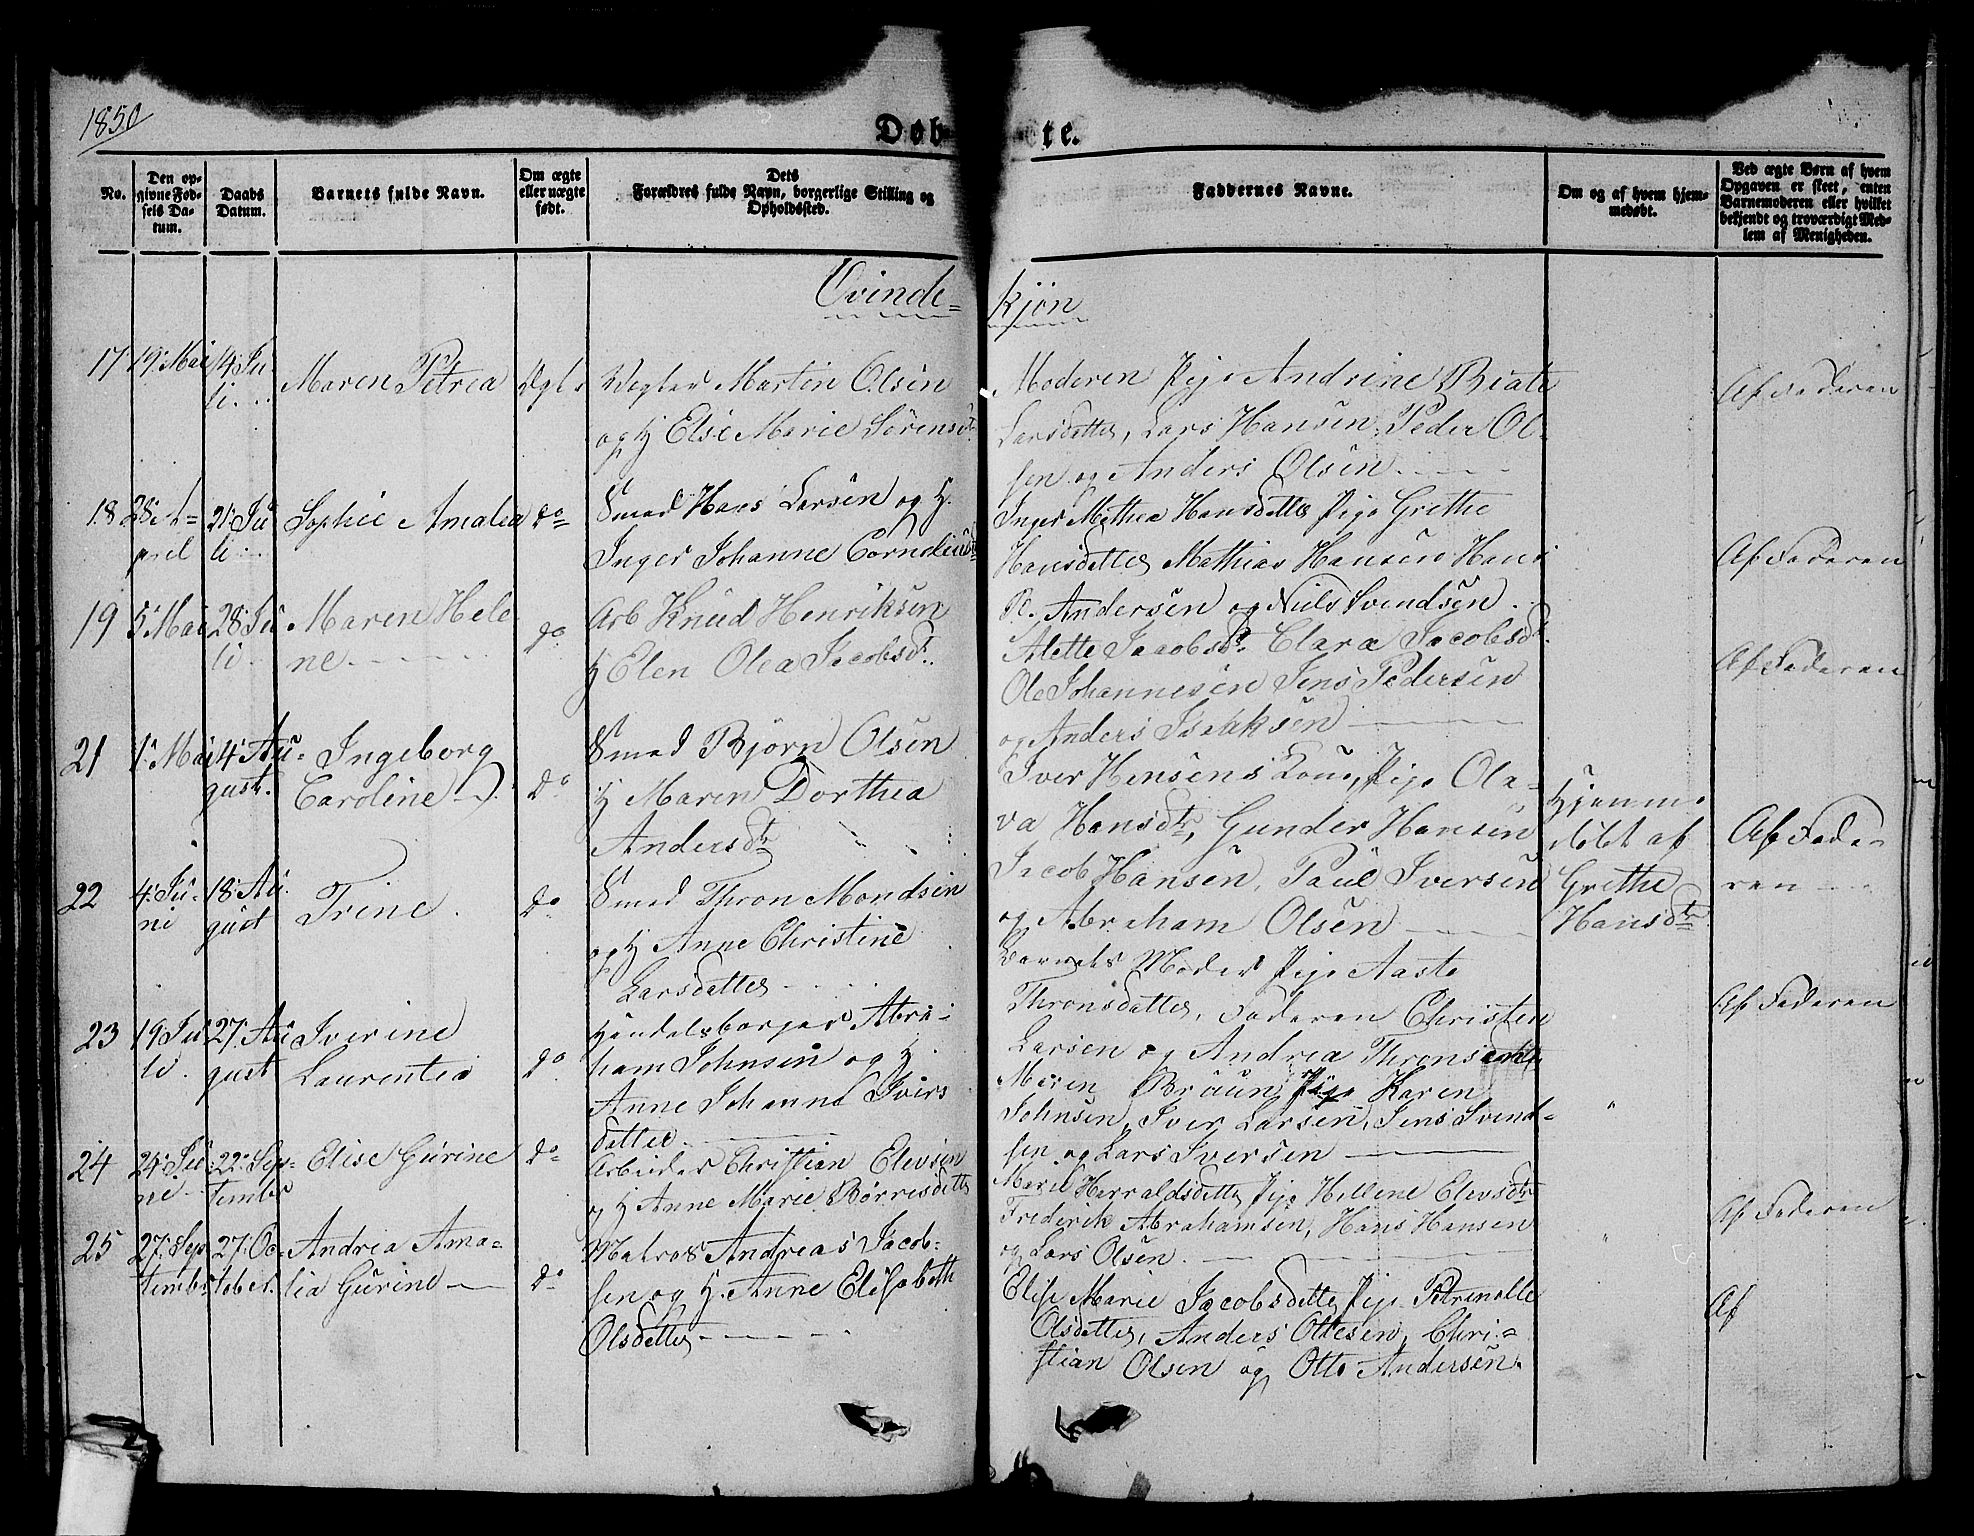 1850
Døb te.
No.
Den op-
givne Fød-
sels Da-
tum.
Daabs
Datum.
Barnets fulde Navn.
Om ægte
eller uægte
født.
Dets
Forældres fulde Navn, borgerlige Stilling og
Opholdssted.
Faddernes Navne.
Om og af hvem hjem-
medøbt.
Ved ægte Børn af hvem
Opgaven er skeet, enten
Barnemoderen eller hvilket
bekjendt og troværdigt Med-
lem af Menigheden.
Qvinde=
kjøn
17
19: Mai
14: Ju
li.
Maren Petrea
Martin Olsen
og H Else Marie Sørensdt.
Moderen Pige Andrine Beate
Larsdatter, Lars Hansen, Peder Ol-
sen og Anders Olsen
Af Faderen
18
28: A=
pril
21: Ju
li
Sophie Amalia
do
Smed Hans Larsen og H.
Inger Johanne Corneliusdt
Inger Mathea Hansdatter Pige Grethe
Hansdatter Mathias Hansen Hans
P. Andersen og Niels Svendsen.
Af Faderen
19
5: Mai
28: Ju
li
Maren Hele
ne
do
Arb Knud Henriksen
H Elen Olea Jacobsdt.
Alette Jacobsdt. Clara Jacobsdt.
Ole Johannesen Jens Pedersen
og Anders Isakksen
Af Faderen
21
1: Mai
4: Au=
gust.
Ingeborg
Caroline
do
Smed Bjørn Olsen
H Maren Dorthea
Andersdtr
Iver Hensens Kone, Pige Ola-
va Hansdtr, Gunder Hansen
Jacob Hansen, Paul Iversen
og Abraham Olsen
Hjemme
døbt af
Grethe
Hansdtr
Af Fade-
ren
22
4: Ju-
ni
18: Au
gust
Trine
do
Smed Thron Mondsen
og H Anne Christine
Larsdatter
Barnets Moder Pige Aaste
Thronsdatter, Faderen Christen
Larsen og Andrea Thronsdatter
Af Faderen
23
19 Ju
li.
27: Au
gust
Iverine
Laurentia
do
Handelsborger Abra-
ham Johnsen og H.
Anne Johanne Ivers
datter
Maren Braun, Pige Karen
Johnsen, Iver Larsen, Jens Svend-
sen og Lars Iversen
24
24: Ju
ni
22: Sep-
tember
Elise Gurine
do
Arbeider Christian Elevsen
og H Anne Marie Børresdatter
Marie Harraldsdatter Pige Hellene Elevsdtr
Frederik Abrahamsen, Hans Hansen
og Lars Olsen.
Af Faderen
25
27: Sep
tember
27: Oc-
tober.
Andrea Ama-
lia Gurine
do
Matros Andreas Jacob-
sen og H. Anne Elisabeth
Olsdatter
Elise Marie Jacobsdatter Pige Petrenelle
Olsdatter, Anders Ottesen, Chri-
stian Olsen og Otto Andersen.
Af